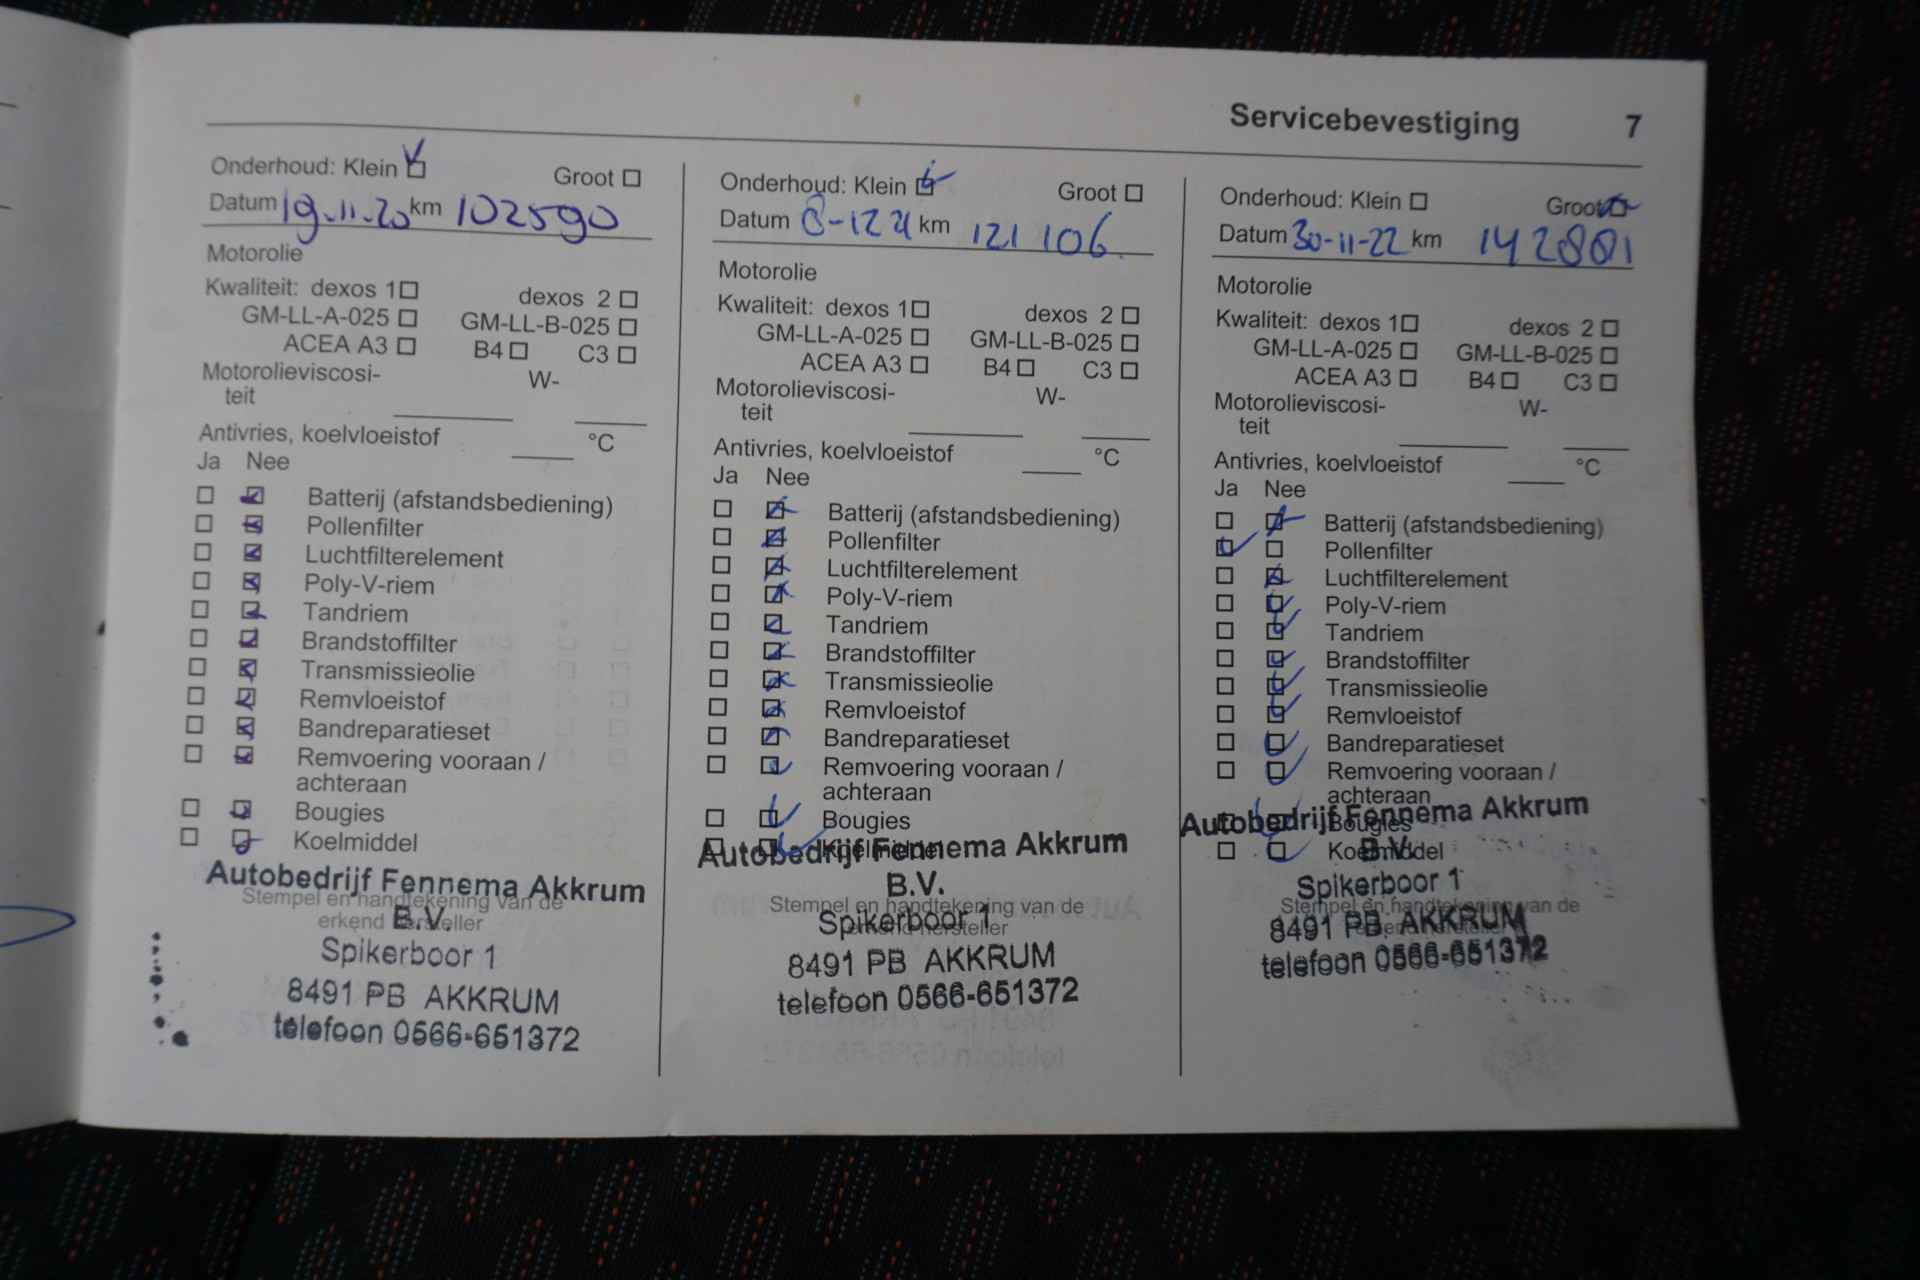 Servicebevestiging 7
Onderhoud: Klein Groot
Datum 19-11-20 km 102590
Motorolie
Kwaliteit: dexos 1 dexos 2
GM-LL-A-025 GM-LL-B-025
ACEA A3 B4 C3
Motorolieviscosi- W-
teit
Antivries, koelvloeistof °C
Ja Nee
Batterij (afstandsbediening)
Pollenfilter
Luchtfilterelement
Poly-V-riem
Tandriem
Brandstoffilter
Transmissieolie
Remvloeistof
Bandreparatieset
Remvoering vooraan /
achteraan
Bougies
Koelmiddel
Autobedrijf Fennema Akkrum
Stempel en handtekening van de
B.V.
erkend hersteller
Spikerboor 1
8491 PB AKKRUM
telefoon 0566-651372
Onderhoud: Klein Groot
Datum 8-12 21 km 121 106
Motorolie
Kwaliteit: dexos 1 dexos 2
GM-LL-A-025 GM-LL-B-025
ACEA A3 B4 C3
Motorolieviscosi- W-
teit
Antivries, koelvloeistof °C
Ja Nee
Batterij (afstandsbediening)
Pollenfilter
Luchtfilterelement
Poly-V-riem
Tandriem
Brandstoffilter
Transmissieolie
Remvloeistof
Bandreparatieset
Remvoering vooraan /
achteraan
Bougies
Koelmiddel
Autobedrijf Fennema Akkrum
B.V.
Stempel en handtekening van de
Spikerboor 1
erkend hersteller
8491 PB AKKRUM
telefoon 0566-651372
Onderhoud: Klein Groot
Datum 30-11-22 km 142801
Motorolie
Kwaliteit: dexos 1 dexos 2
GM-LL-A-025 GM-LL-B-025
ACEA A3 B4 C3
Motorolieviscosi- W-
teit
Antivries, koelvloeistof °C
Ja Nee
Batterij (afstandsbediening)
Pollenfilter
Luchtfilterelement
Poly-V-riem
Tandriem
Brandstoffilter
Transmissieolie
Remvloeistof
Bandreparatieset
Remvoering vooraan /
achteraan
Autobedrijf Fennema Akkrum
Bougies
B.V.
Koelmiddel
Spikerboor 1
Stempel en handtekening van de
8491 PB AKKRUM
telefoon 0566-651372